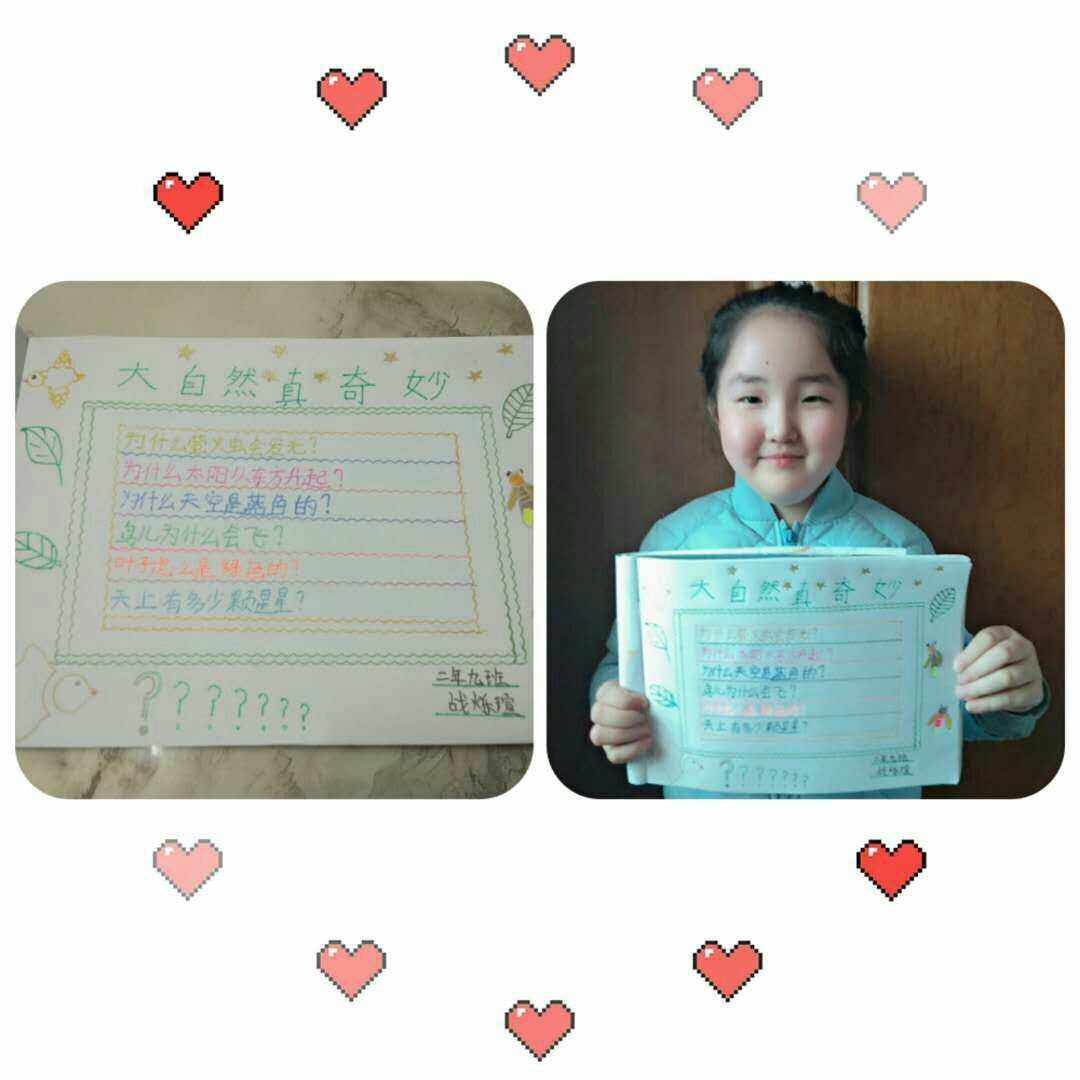 大自然真奇妙
为什么萤火虫会发光?
为什么太阳从东方升起?
为什么天空是蓝色的?
鸟儿为什么会飞?
叶子怎么是绿色的?
天上有多少颗星星?
???????
二年九班
战烁瑄
大自然真奇妙
为什么萤火虫会发光?
为什么太阳从东方升起?
为什么天空是蓝色的?
鸟儿为什么会飞?
叶子怎么是绿色的?
天上有多少颗星星?
???????
二年九班
战烁瑄